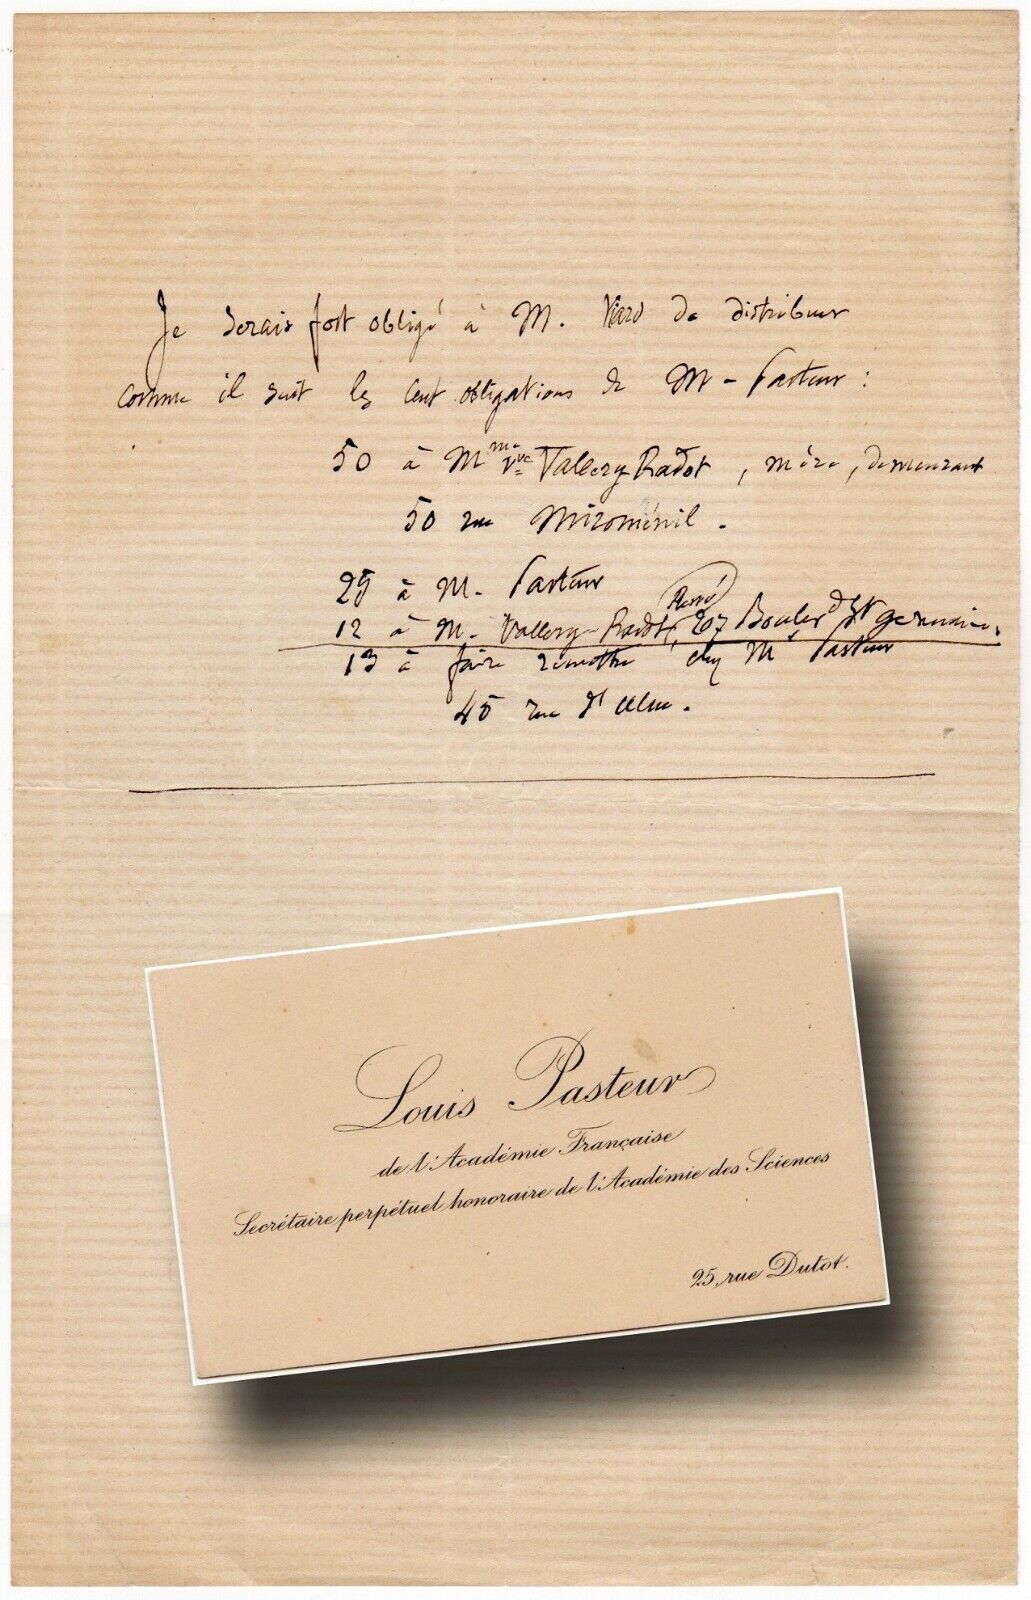 Je serais fort obligé à M. Viard de distribuer
comme il suit les cent obligations de M - Pasteur :
50 à Mme Vve Vallery Radot, mère, demeurant
50 rue Miroménil.
25 à M. Pasteur
12 à M. Vallery-Radot (René) 207 Bouled St germain.
13 à faire remettre chez M Pasteur
45 rue d'Ulm.
Louis Pasteur
de l'Académie Française
Secrétaire perpétuel honoraire de l'Académie des Sciences
25, rue Dutot.